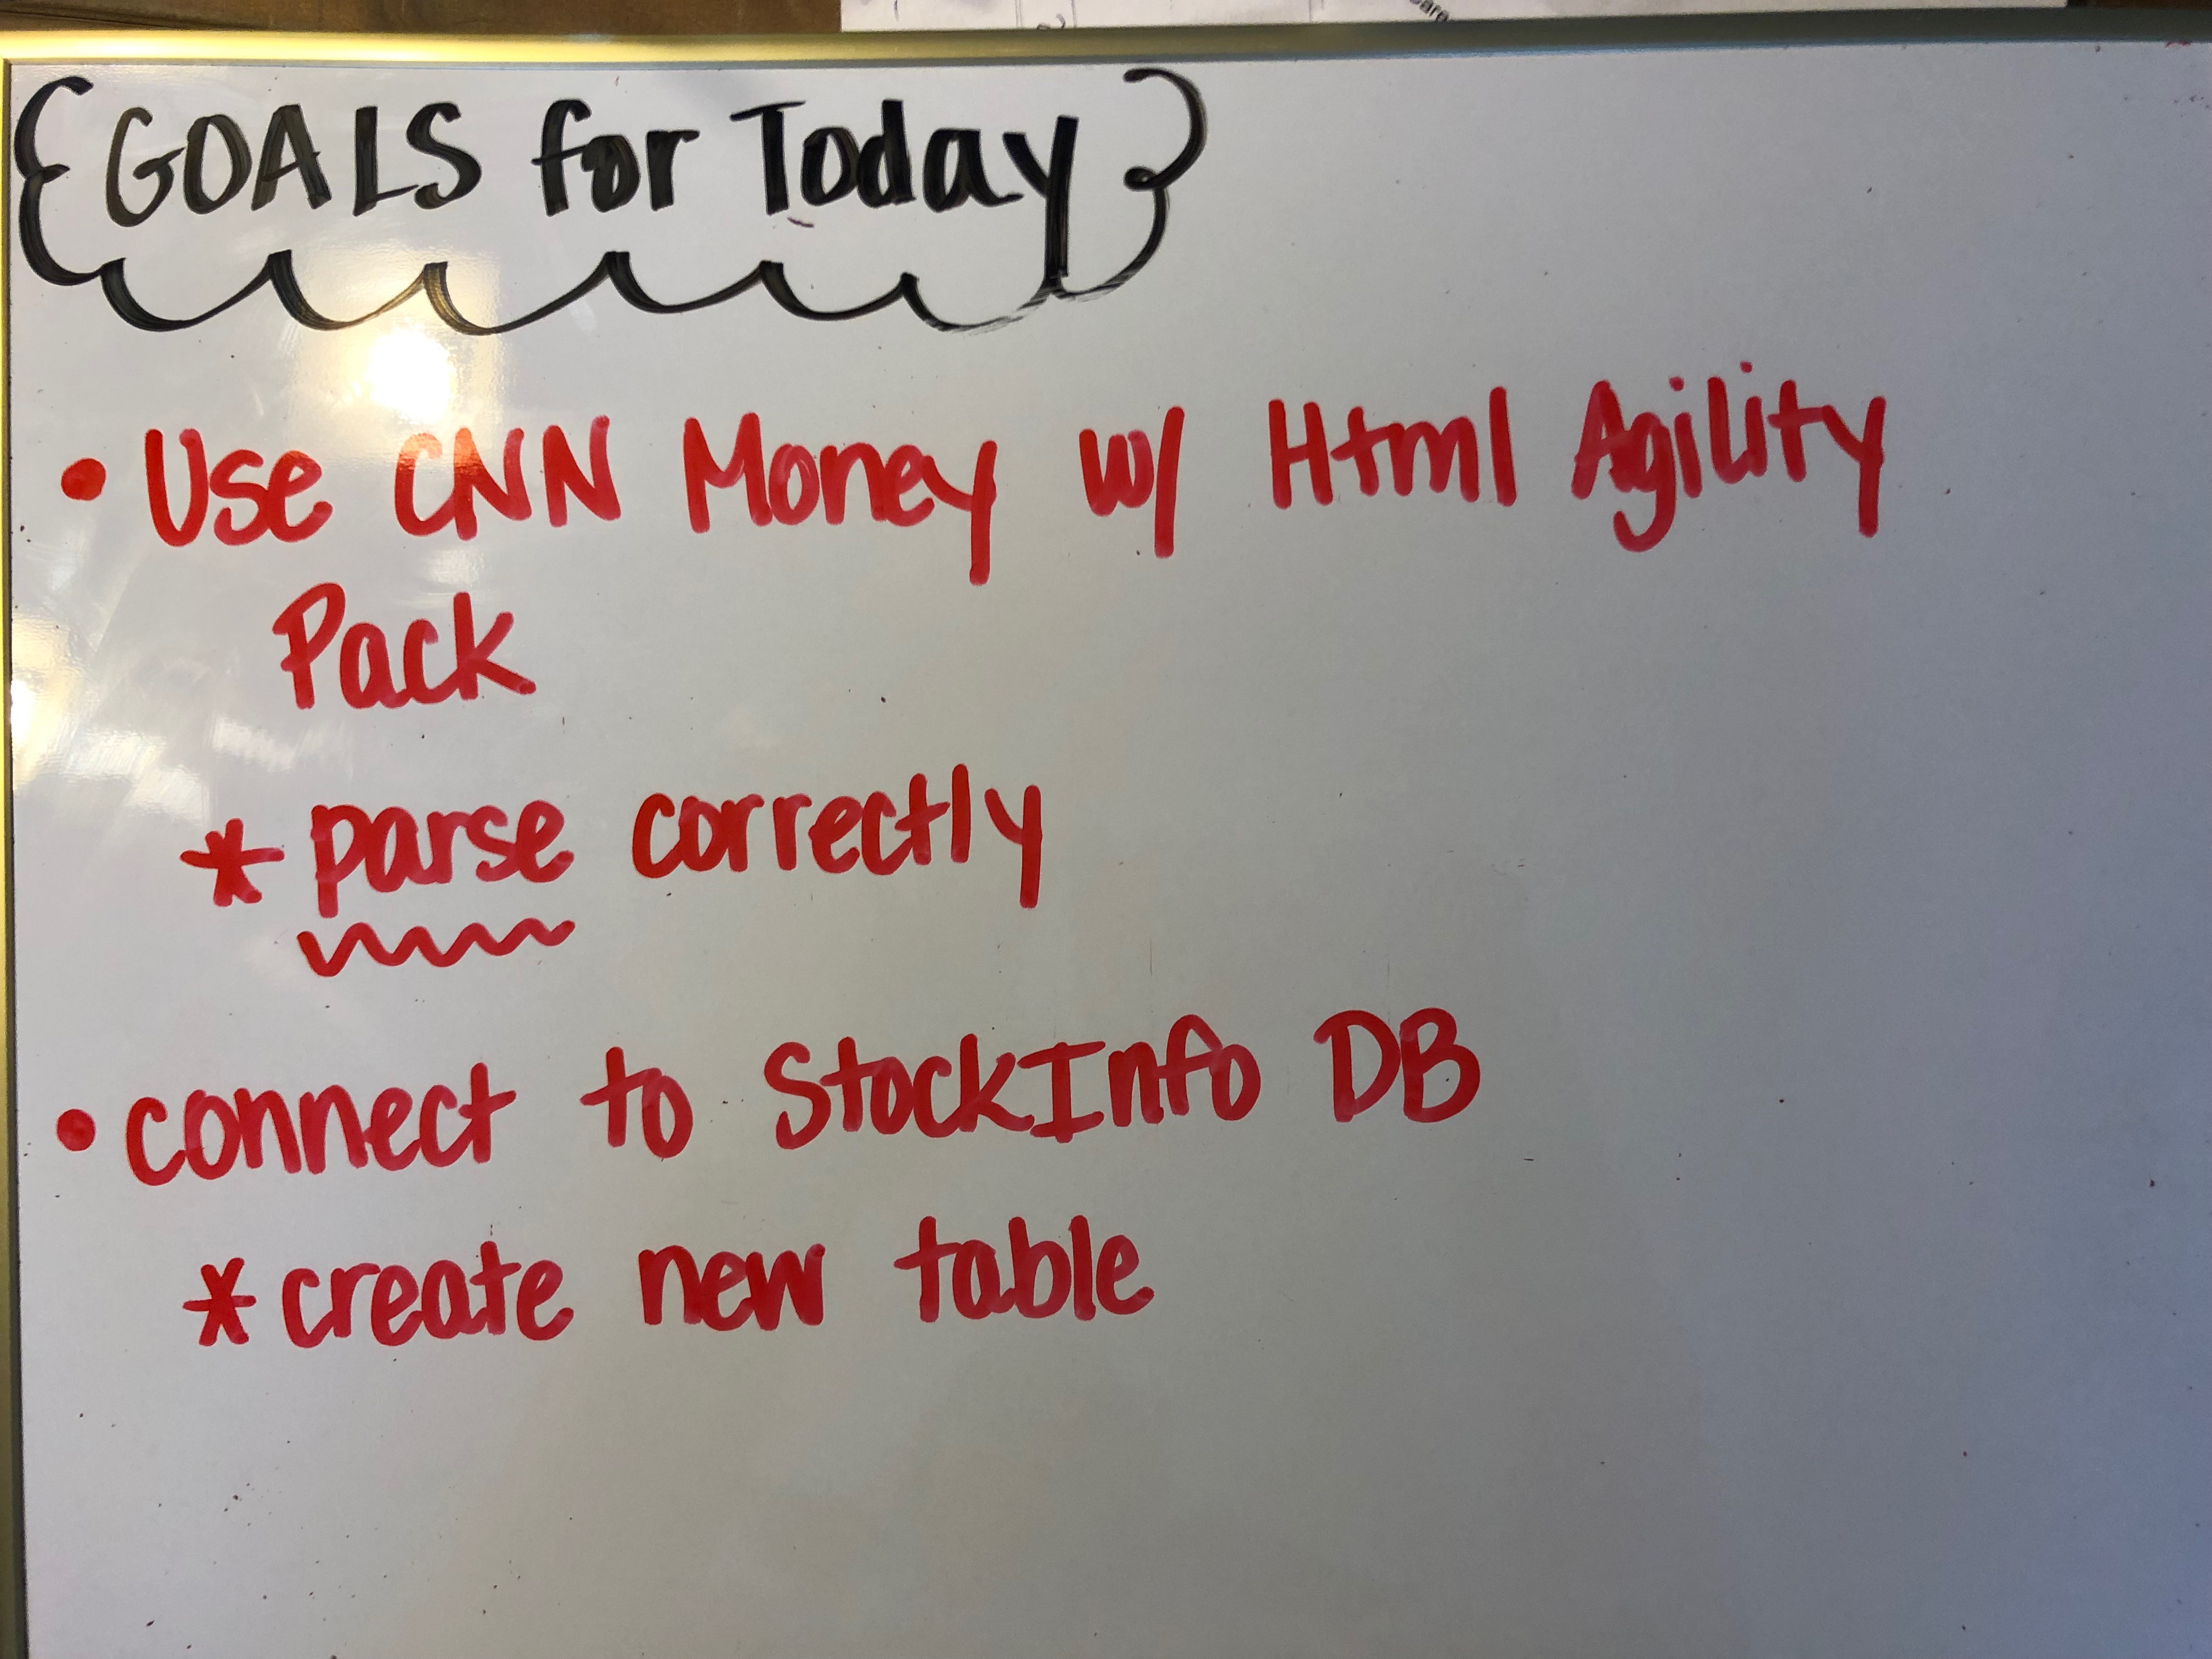 GOALS for Today
• Use CNN Money w/ Html Agility
Pack
* parse correctly
• connect to StockInfo DB
* create new table